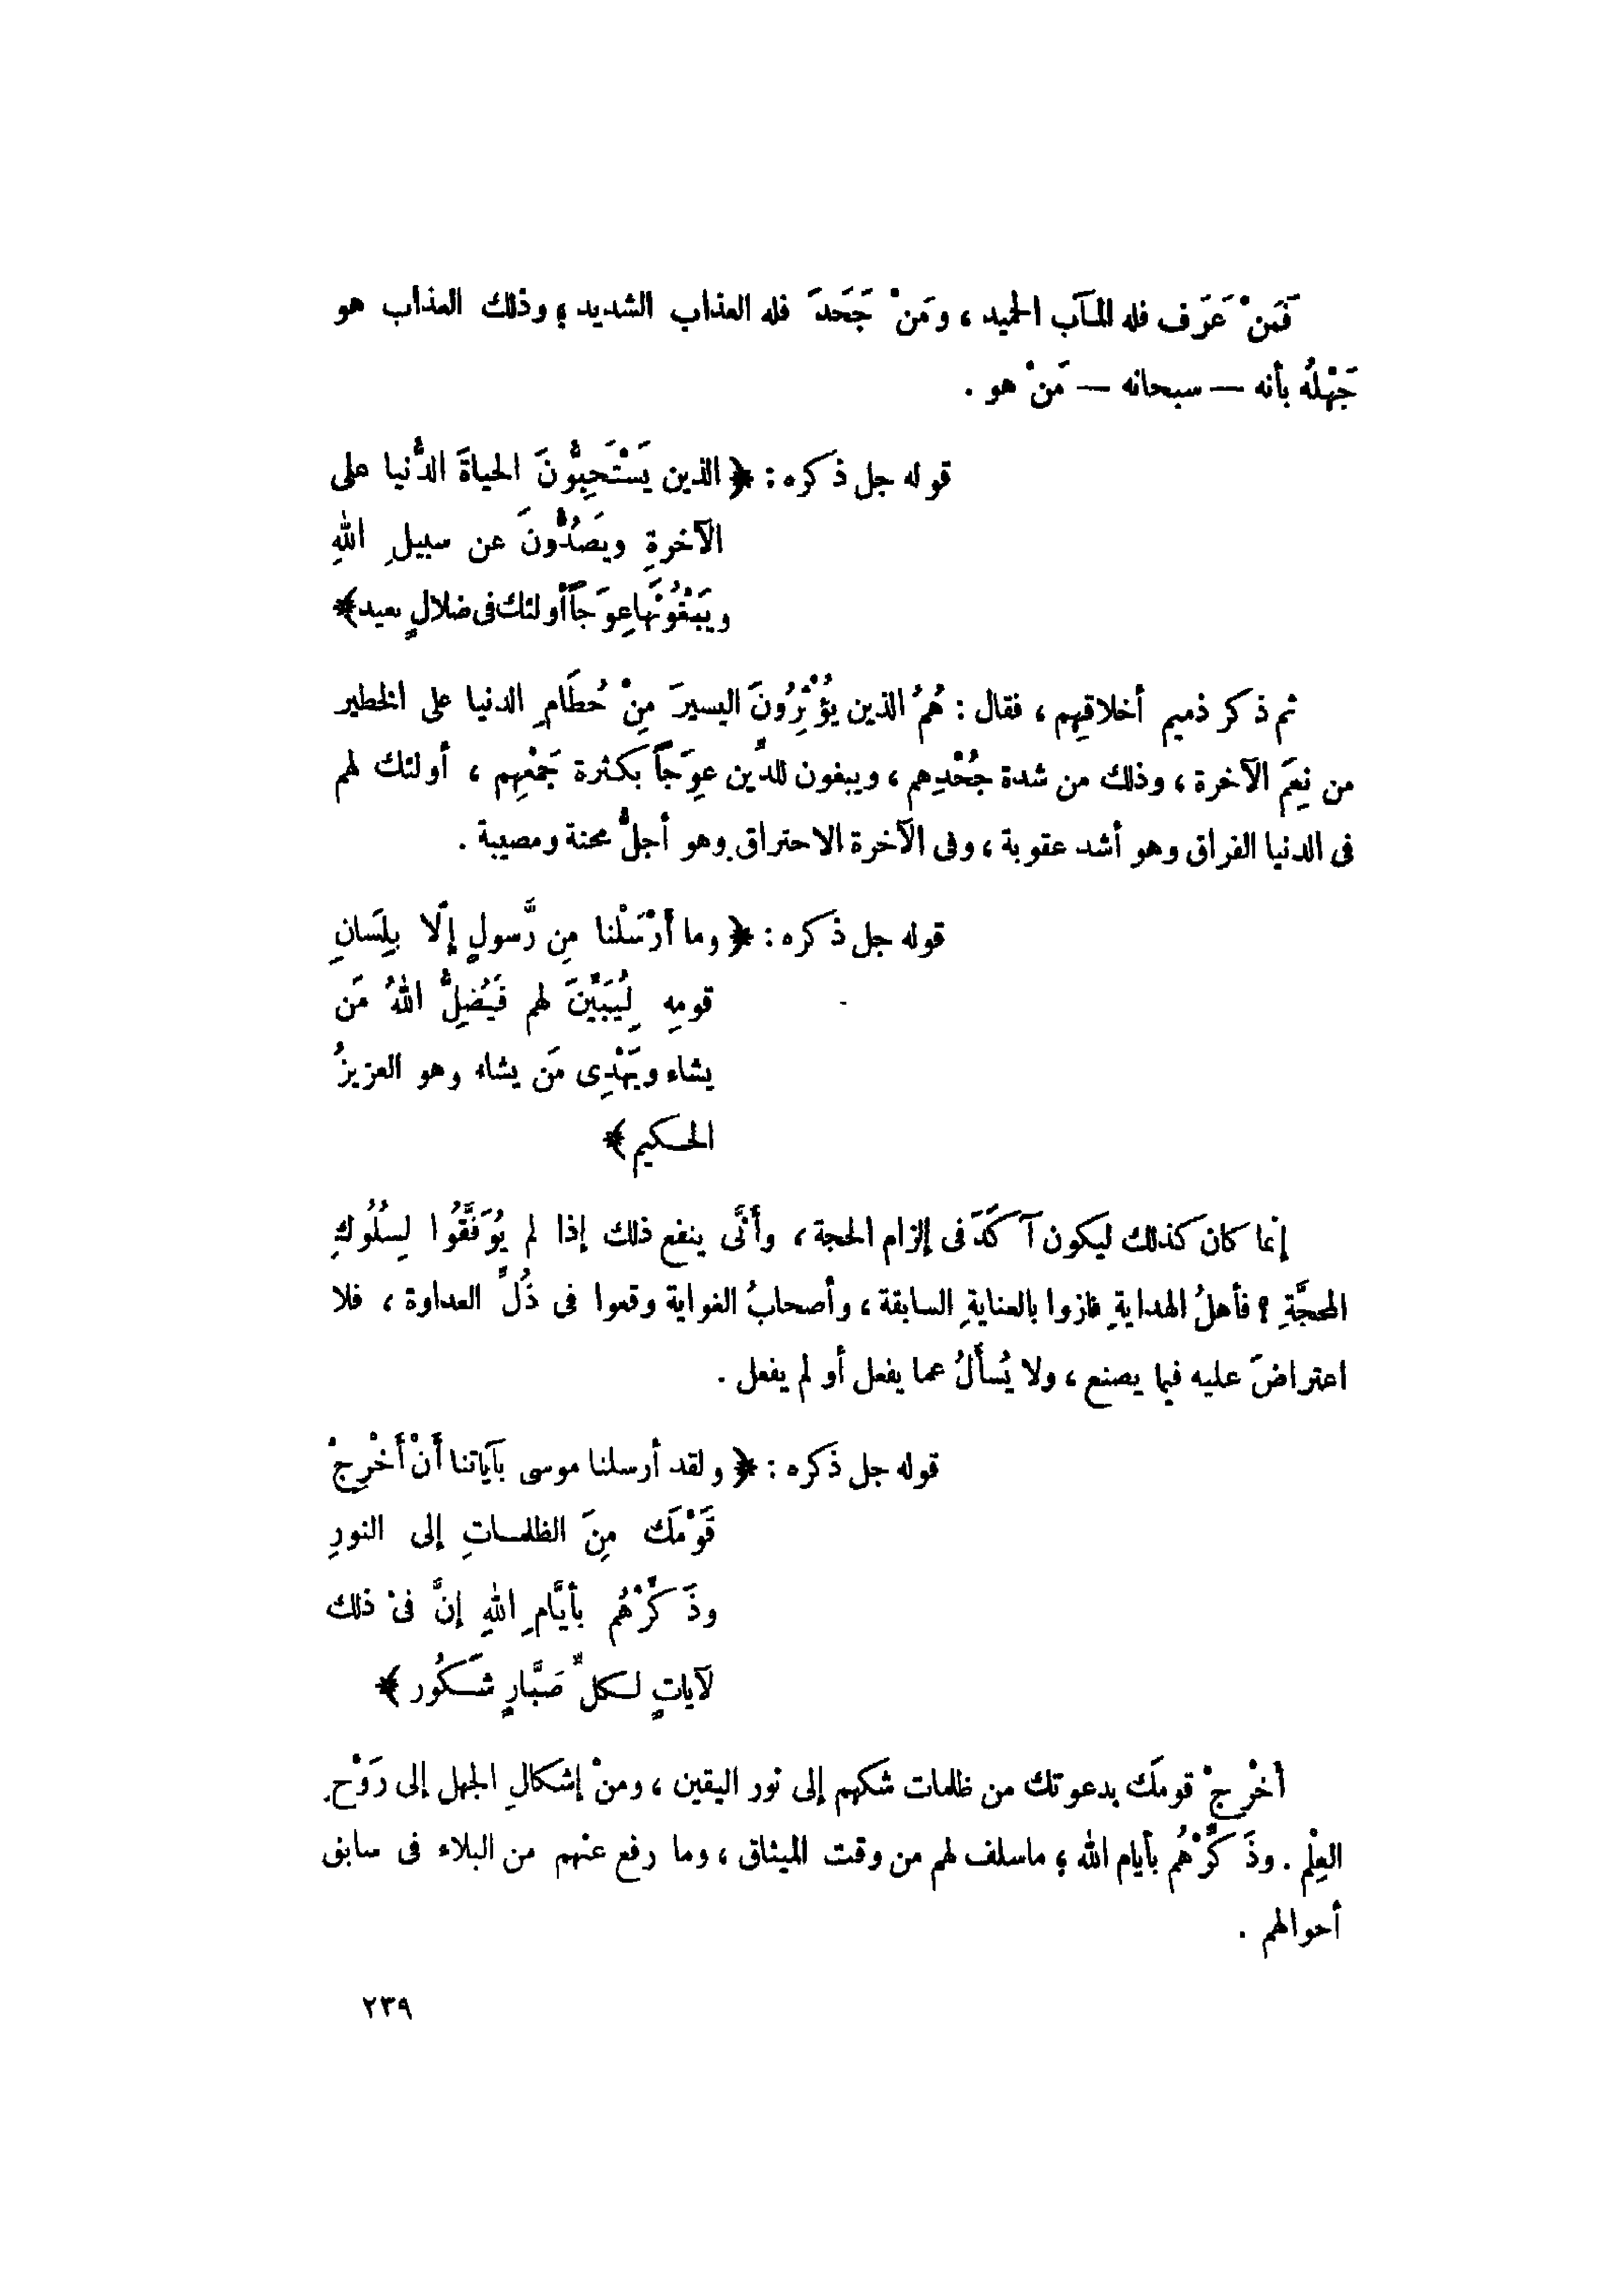 فَمَنْ عَرَف فله المآب الحميد ، ومَنْ جَحَدَ فله العذاب الشديد ؛ وذلك العذاب هو
جَهْلُه بأنه — سبحانه — مَنْ هو .
قوله جل ذكره : ﴿ الذين يَسْتَحِبُّونَ الحياةَ الدُّنيا على
الآخرةِ ويَصُدُّونَ عن سبيلِ اللهِ
ويَبْغُونَها عِوَجَاً أولئك فى ضلالٍ بعيد ﴾
ثم ذكر ذميم أخلاقهِم ، فقال : هُمُ الذين يؤْثِرُونَ اليسيرَ مِنْ حُطَامِ الدنيا على الخطير
من نِعَمَ الآخرة ، وذلك من شدة جُحْدِهم ، ويبغون للدِّين عوِجَاً بكثرة جَمْعِهم ، أولئك لهم
فى الدنيا الفراق وهو أشد عقوبة ، وفى الآخرة الاحتراق وهو أجلُّ محنة ومصيبة .
قوله جل ذكره : ﴿ وما أَرْسَلْنا مِن رَّسولٍ إلَّا بِلِسَانِ
قومِه لِيُبَيِّنَ لهم فَيُضِلُّ اللهُ مَن
يشاء ويَهْدِى مَن يشاء وهو العزيزُ
الحكيم ﴾
إنما كان كذلك ليكون آكَدَ فى إلزام الحجة ، وأَنَّى ينفع ذلك إذا لم يُوَفَّقُوا لِسُلُوكِ
المحجَّةِ ؟ فأهلُ الهدايةِ فازوا بالعنايةِ السابقة ، وأصحابُ الغواية وقعوا فى ذُلِّ العداوة ، فلا
اعتراضَ عليه فيما يصنع ، ولا يُسأَلُ عما يفعل أو لم يفعل .
قوله جل ذكره : ﴿ ولقد أرسلنا موسى بآياتنا أَنْ أَخْرِجْ
قَوْمَك مِنَ الظلماتِ إلى النورِ
وذَكِّرْهُم بأيَّامِ اللهِ إنَّ فىْ ذلك
لآياتٍ لكلِّ صَبَّارٍ شَكُور ﴾
أخْرِجْ قومَك بدعوتك من ظلمات شكهم إلى نور اليقين ، ومنْ إشكالِ الجهل إلى رَوْحِ
العِلْم . وذَكِّرْهُم بأيام الله ؛ ماسلف لهم من وقت الميثاق ، وما رفع عنهم من البلاء فى سابق
أحوالهم .
٢٣٩